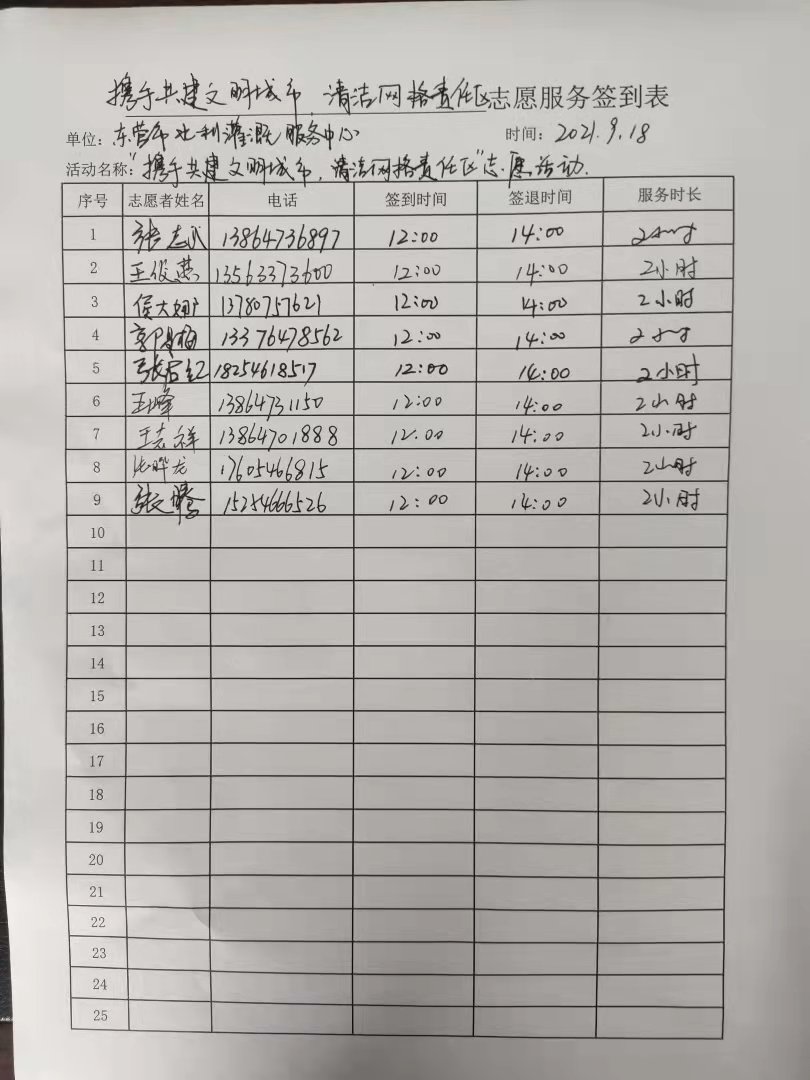 携手共建文明城市,清洁网格责任区志愿服务签到表
单位:东营市水利灌溉服务中心 时间:2021.9.18
活动名称:"携手共建文明城市,清洁网格责任区"志愿活动.
序号 志愿者姓名 电话 签到时间 签退时间 服务时长
1 张志武 13864736897 12:00 14:00 2小时
2 王俊燕 13563373600 12:00 14:00 2小时
3 侯大 13780757621 12:00 14:00 2小时
4 郭 梅 13376478562 12:00 14:00 2小时
5 张红 18254618517 12:00 14:00 2小时
6 王峰 13864731150 12:00 14:00 2小时
7 王志祥 13864701888 12:00 14:00 2小时
8 晔龙 17605466815 12:00 14:00 2小时
9 张文腾 15254666526 12:00 14:00 2小时
10
11
12
13
14
15
16
17
18
19
20
21
22
23
24
25